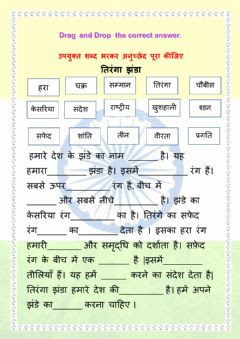 Drag and Drop the correct answer.
उपयुक्त शब्द भरकर अनुच्छेद पूरा कीजिए
तिरंगा झंडा
हरा चक्र सम्मान तिरंगा चौबीस
केसरिया संदेश राष्ट्रीय खुशहाली शान
सफेद शांति तीन वीरता प्रगति
हमारे देश के झंडे का नाम ______ है। यह
हमारा______ झंडा है। इसमें______ रंग हैं।
सबसे ऊपर______ रंग हैं, बीच में
______ और सबसे नीचे______ है। झंडे का
केसरिया रंग______ का है। तिरंगे का सफेद
रंग______का ______देता है । इसका हरा रंग
हमारी______ और समृद्धि को दर्शाता है। सफ़ेद
रंग के बीच में एक ______ है |इसमें______
तीलियाँ हैं। यह हमें ______ करने का संदेश देता है|
तिरंगा झंडा हमारे देश की______ है। हमें अपने
झंडे का______ करना चाहिए ।